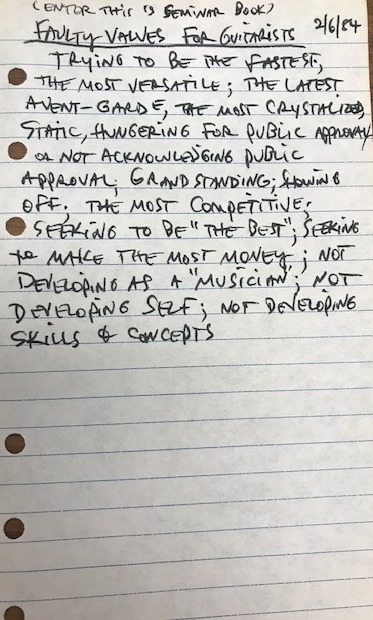 (ENTOR THIS IS SEMINAR BOOK)
2/6/84
FAULTY VALUES FOR GUITARISTS
TRYING TO BE THE FASTEST,
THE MOST VERSATILE; THE LATEST
AVENT-GARDE, THE MOST CRYSTALIZED,
STATIC, HUNGERING FOR PUBLIC APPROVAL
OR NOT ACKNOWLEDGING PUBLIC
APPROVAL; GRANDSTANDING; SHOWING
OFF; THE MOST COMPETITIVE;
SEEKING TO BE "THE BEST"; SEEKING
TO MAKE THE MOST MONEY; NOT
DEVELOPING AS A "MUSICIAN"; NOT
DEVELOPING SELF; NOT DEVELOPING
SKILLS & CONCEPTS